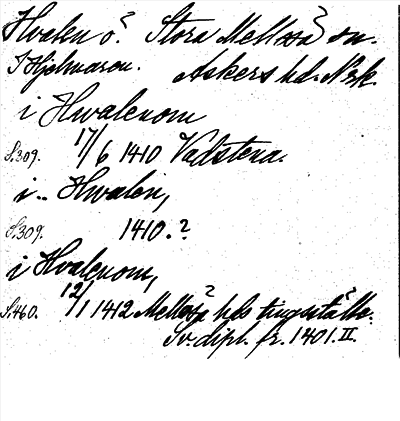 Hvalen ö? Stora Mellösa sn.
I Hjelmaren. Askers hd. N:rk.
i Hwalenom
S.309. 17/6 1410 Vadstena.
i .. Hwalen,
S.309. 1410.?
i Hvalenom,
S.460. 12/1 1412 Mellösa hds tingställe.
Sv. dipl. fr. 1401. II.